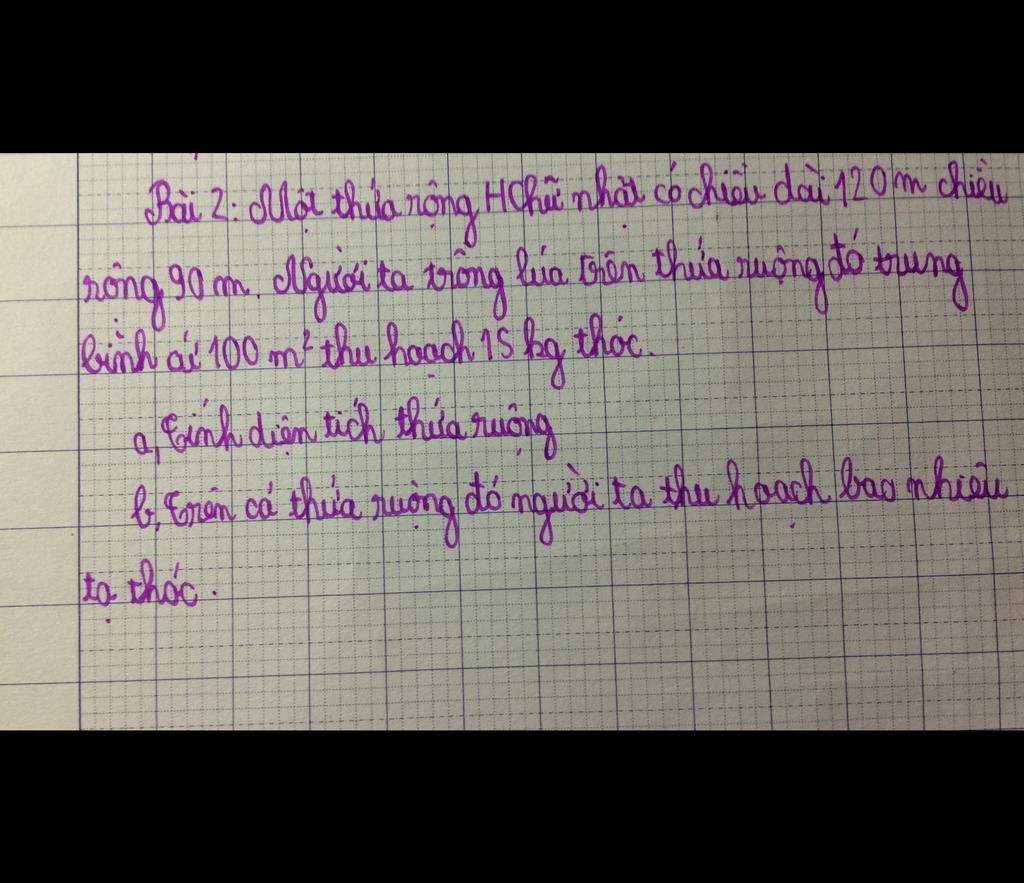 Bài 2: Một thửa rộng HChữ nhật có chiều dài 120 m chiều
rộng 90 m. Người ta trồng lúa trên thửa ruộng đó trung
bình cứ 100 m² thu hoạch 15 kg thóc.
a, Tính diện tích thửa ruộng
b, Trên cả thửa ruộng đó người ta thu hoạch bao nhiêu
tạ thóc.